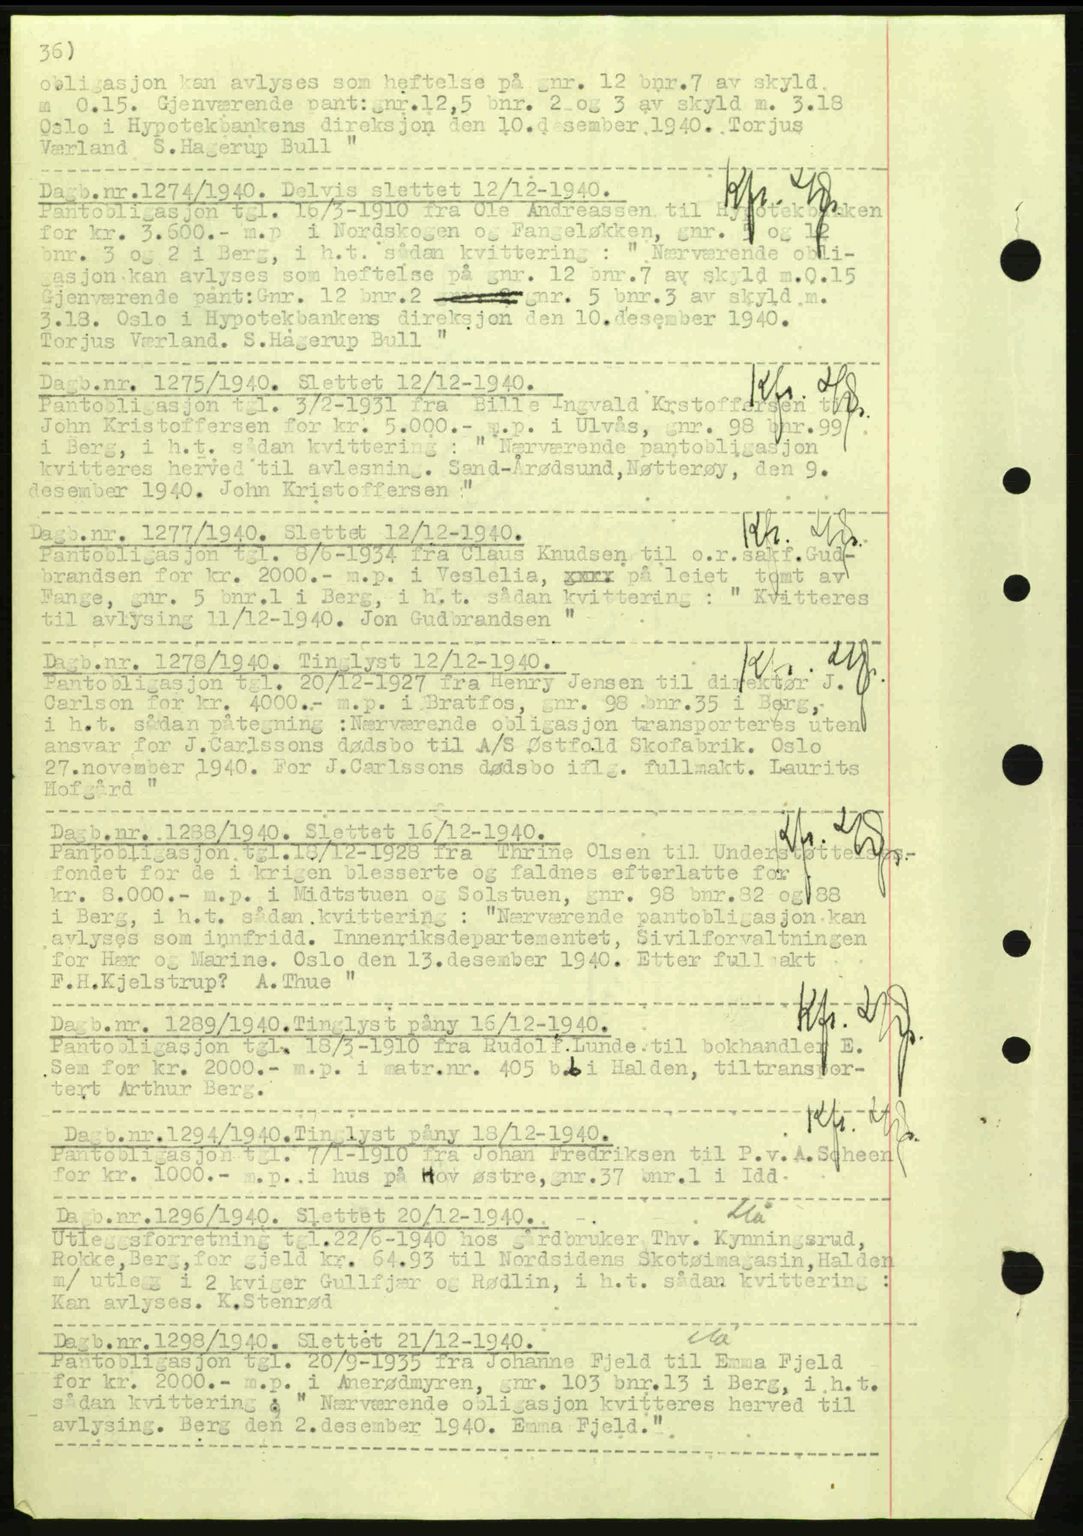 36)
obligasjon kan avlyses som heftelse på gnr. 12 bnr.7 av skyld
m 0.15. Gjenværende pant:gnr.12,5 bnr. 2 og 3 av skyld m. 3.18
Oslo i Hypotekbankens direksjon den 10.desember 1940. Torjus
Værland S.Hagerup Bull "
Dagb.nr.1274/1940. Delvis slettet 12/12-1940.
Pantobligasjon tgl. 16/3-1910 fra Ole Andreassen til Hypotekbanken
for kr. 3.600.- m.p i Nordskogen og Fangeløkken, gnr. 5 og 12
bnr. 3 og 2 i Berg, i h.t. sådan kvittering : " Nærværende obli-
gasjon kan avlyses som heftelse på gnr. 12 bnr.7 av skyld m.0.15
Gjenværende pant:Gnr. 12 bnr.2 gnr. 5 bnr.3 av skyld m.
3.18. Oslo i Hypotekbankens direksjon den 10.desember 1940.
Torjus Værland. S.Hagerup Bull "
Dagb.nr. 1275/1940. Slettet 12/12-1940.
Pantobligasjon tgl. 3/2-1931 fra Bille Ingvald Krstoffersen til
John Kristoffersen for kr. 5.000.- m.p. i Ulvås, gnr. 98 bnr.99
i Berg, i h.t. sådan kvittering : " Nærværende pantobligasjon
kvitteres herved til avlesning. Sand-Årødsund,Nøtterøy, den 9.
desember 1940. John Kristoffersen "
Dagb.nr. 1277/1940. Slettet 12/12-1940.
Pantobligasjon tgl. 8/6-1934 fra Claus Knudsen til o.r.sakf.Gud-
brandsen for kr. 2000.- m.p. i Veslelia, xxxx på leiet tomt av
Fange, gnr. 5 bnr.1 i Berg, i h.t. sådan kvittering : " Kvitteres
til avlysing 11/12-1940. Jon Gudbrandsen "
Dagb.nr. 1278/1940. Tinglyst 12/12-1940.
Pantobligasjon tgl. 20/12-1927 fra Henry Jensen til direktør J.
Carlson for kr. 4000.- m.p. i Bratfos, gnr. 98 bnr.35 i Berg,
i h.t. sådan påtegning :Nærværende obligasjon transporteres uten
ansvar for J.Carlssons dødsbo til A/S Østfold Skofabrik. Oslo
27.november 1940. For J.Carlssons dødsbo iflg. fullmakt. Laurits
Hofgård "
Dagb.nr. 1288/1940. Slettet 16/12-1940.
Pantobligasjon tgl.18/12-1928 fra Thrine Olsen til Understøttelses-
fondet for de i krigen blesserte og faldnes efterlatte for
kr. 8.000.- m.p. i Midtstuen og Solstuen, gnr. 98 bnr.82 og 88
i Berg, i h.t. sådan kvittering : "Nærværende pantobligasjon kan
avlyses som innfridd. Innenriksdepartementet, Sivilforvaltningen
for Hær og Marine. Oslo den 13.desember 1940. Etter fullmakt
F.H.Kjelstrup? A.Thue "
Dagb.nr. 1289/1940.Tinglyst påny 16/12-1940.
Pantobligasjon tgl. 18/3-1910 fra Rudolf Lunde til bokhandler E.
Sem for kr. 2000.- m.p. i matr.nr. 405 b i Halden, tiltranspor-
tert Arthur Berg.
Dagb.nr.1294/1940.Tinglyst påny 18/12-1940.
Pantobligasjon tgl. 7/1-1910 fra Johan Fredriksen til P.v.A.Scheen
for kr. 1000.- m.p. i hus på Hov østre,gnr.37 bnr.1 i Idd
Dagb.nr.1296/1940. Slettet 20/12-1940.
Utleggsforretning tgl.22/6-1940 hos gårdbruker Thv. Kynningsrud,
Rokke,Berg,for gjeld kr. 64.93 til Nordsidens Skotøimagasin,Halden
m/ utlegg i 2 kviger Gullfjær og Rødlin, i h.t. sådan kvittering :
Kan avlyses. K.Stenrød
Dagb.nr.1298/1940. Slettet 21/12-1940.
Pantobligasjon tgl. 20/9-1935 fra Johanne Fjeld til Emma Fjeld
for kr. 2000.- m.p. i Anerødmyren, gnr. 103 bnr.13 i Berg, i h.t.
sådan kvittering : " Nærværende obligasjon kvitteres herved til
avlysing. Berg den 2.desember 1940. Emma Fjeld."